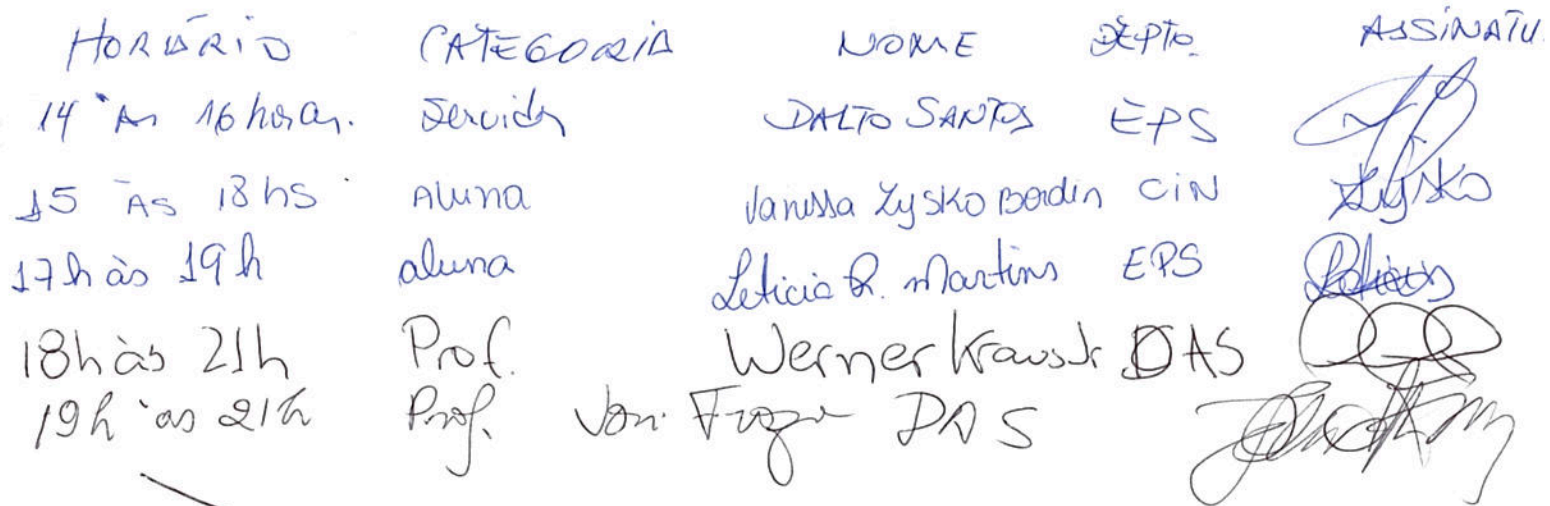 HORÁRIO CATEGORIA NOME DEPTO. ASSINATU.
14 às 16 horas. Servidor DALTO SANTOS EPS
15 ÀS 18 hs Aluna Vanessa Zysko Bordin CIN Zysko
17h às 19h aluna Letícia R. Martins EPS
18h às 21h Prof. Werner Kraus Jr DAS
19h às 21h Prof. DAS